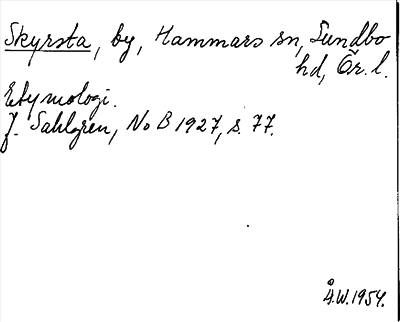 Skyrsta, by, Hammars sn, Sundbo
hd, Ör. l.
Etymologi.
J. Sahlgren, NoB 1927, s. 77.
Å.W. 1954.